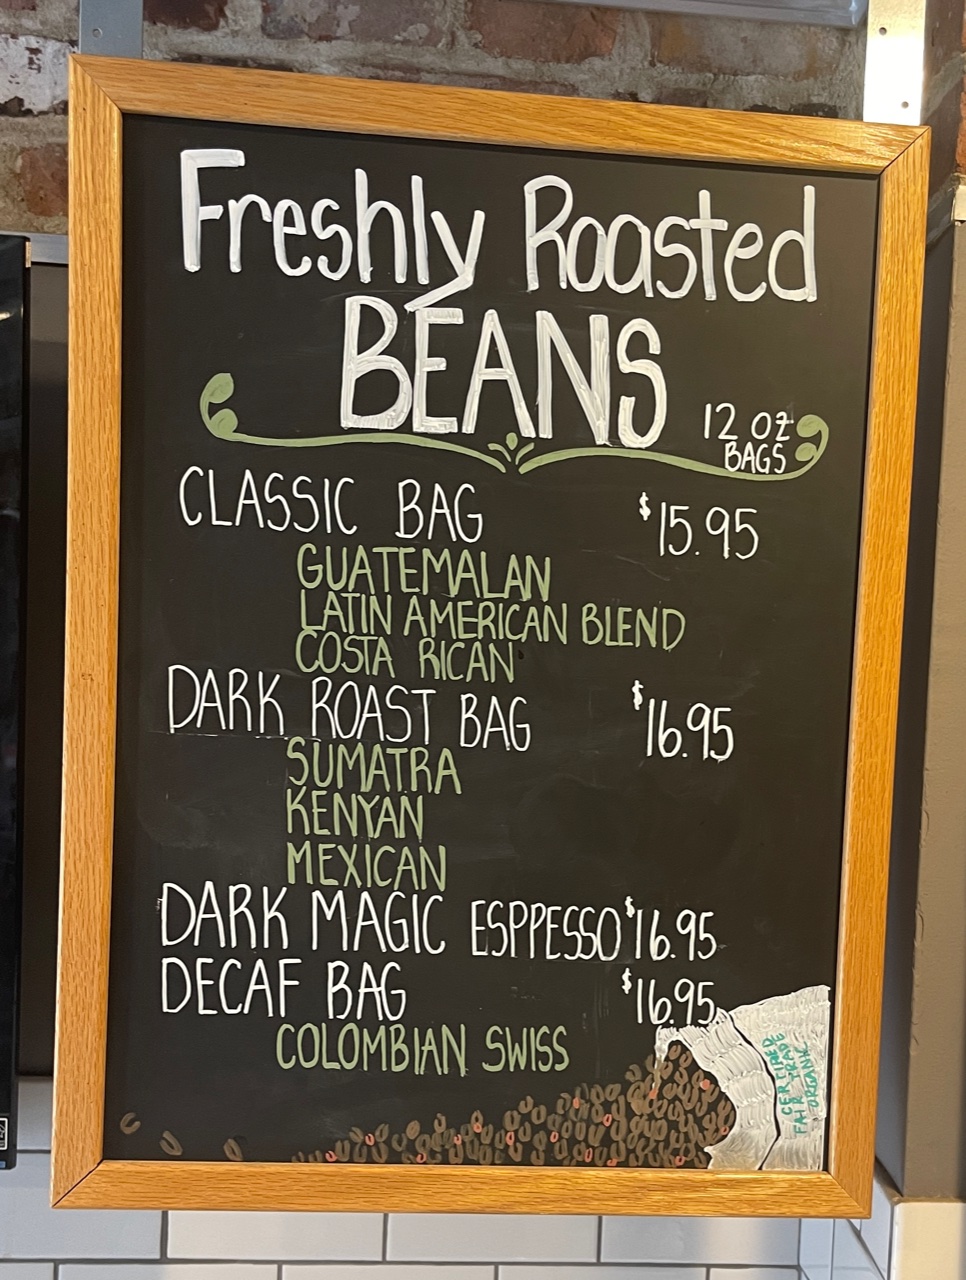 Freshly Roasted
BEANS
12 oz
BAGS
CLASSIC BAG $15.95
GUATEMALAN
LATIN AMERICAN BLEND
COSTA RICAN
DARK ROAST BAG $16.95
SUMATRA
KENYAN
MEXICAN
DARK MAGIC ESPPESSO $16.95
DECAF BAG $16.95
COLOMBIAN SWISS
CERTIFIED
FAIR TRADE
ORGANIC